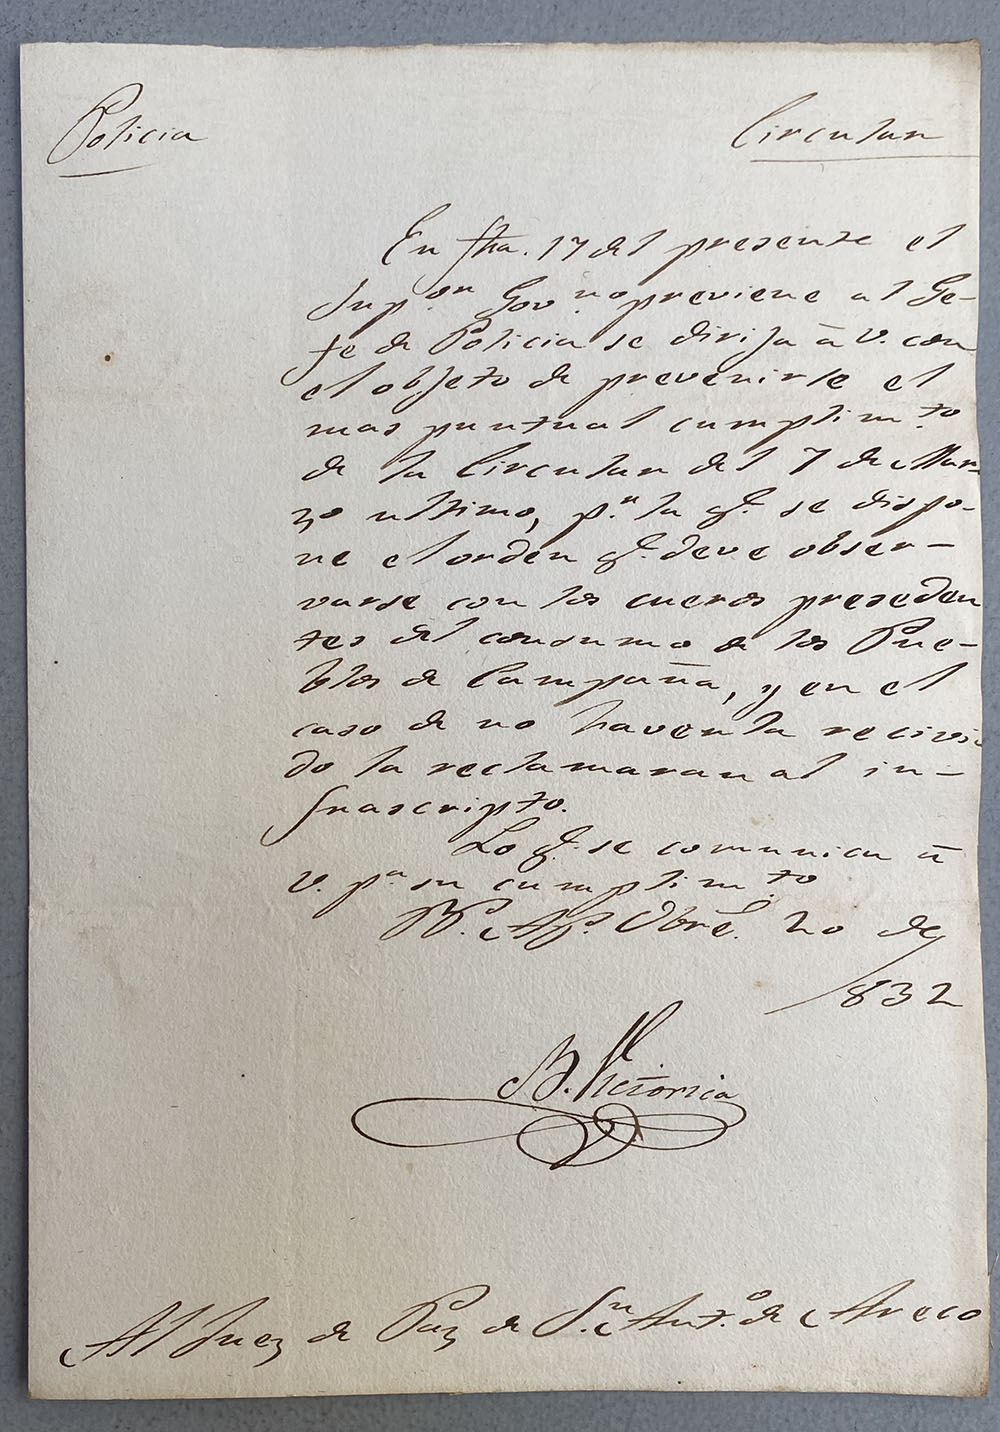 Policia
Circular
En fha. 17 del presente el
Sup.or Gov.no previene al Ge-
fe de Policia se dirija à V. con
el objeto de prevenirle el
mas puntual cumplim.to
de la Circular del 7 de Mar-
zo ultimo, p.r la q.e se dispo-
ne el orden q.e deve obser-
varse con los cueros preseden
tes del consumo de los Pue-
blos de Campaña, y en el
caso de no haverla recivi
do la reclamaran al in-
frascripto.
Lo q.e se comunica à
V. p.a su cumplim.to
B.s Ay.s Obre. 20 de
1832
B. Victorica
Al Juez de Paz de S.n Ant.o de Areco